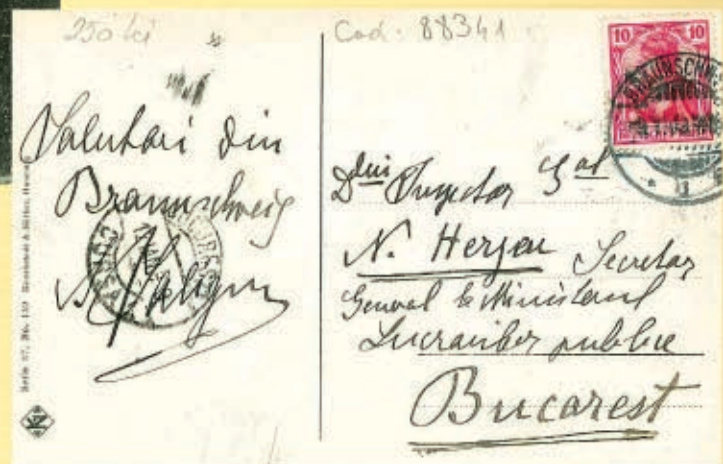 250 lei
Cod. 88341
10 10
BRAUNSCHWE
Salutări din
Braunschweig
Saligny
Dlui Inspector Gal
N. Herjeu Secretar
General la Ministerul
Lucrărilor publice
Bucarest